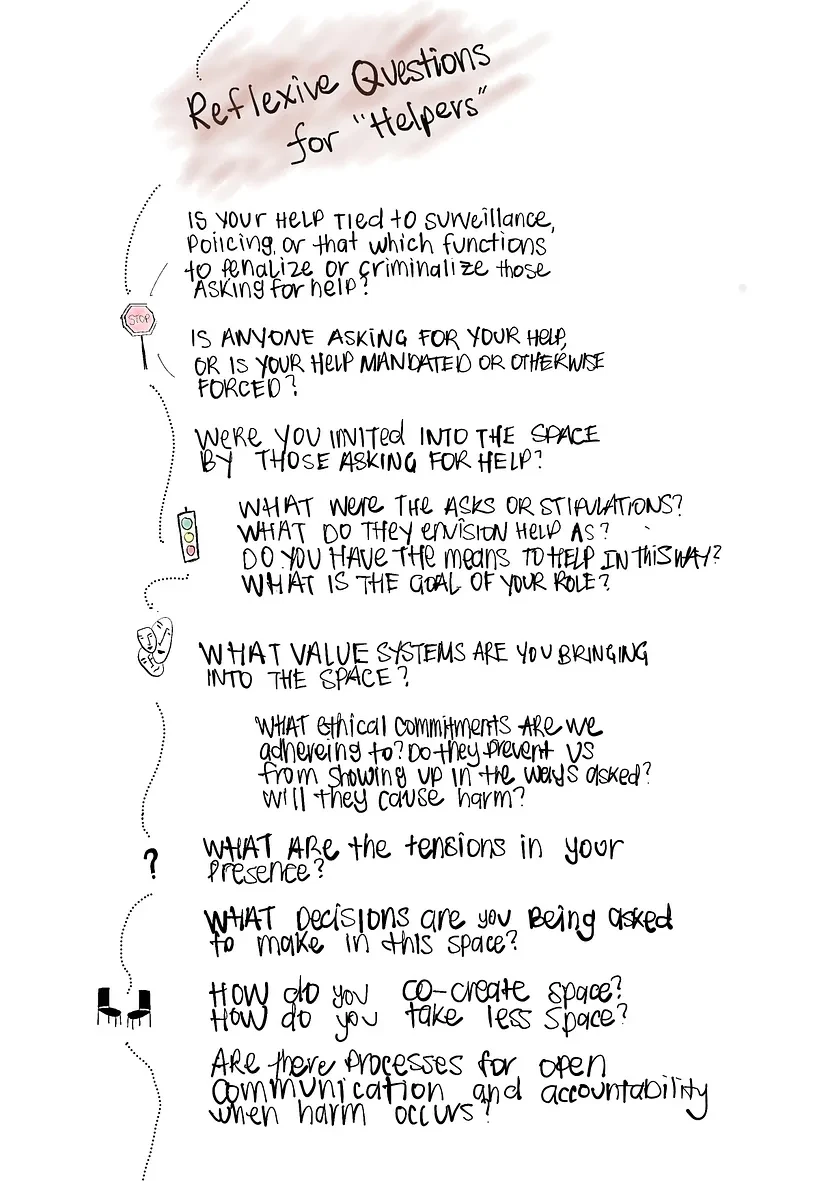 Reflexive Questions
for "Helpers"
IS YOUR HELP TIED TO SURVEILLANCE,
POLICING, OR that which functions
to penalize or criminalize those
ASKING for help?
STOP
IS ANYONE ASKING FOR YOUR HELP,
OR IS YOUR HELP MANDATED OR OTHERWISE
FORCED?
WERE YOU INVITED INTO THE SPACE
BY THOSE ASKING FOR HELP?
WHAT WERE THE ASKS OR STIPULATIONS?
WHAT DO THEY ENVISION HELP AS?
DO YOU HAVE THE means TO HELP IN THIS WAY?
WHAT IS THE GOAL OF YOUR ROLE?
WHAT VALUE SYSTEMS ARE YOU BRINGING
INTO THE SPACE?
WHAT ethical commitments ARE we
adhereing to? Do they prevent US
from showing up in the ways asked?
will they cause harm?
WHAT ARE the tensions in your
presence?
WHAT Decisions are you Being asked
to make in this space?
?
HOW do you co-create space?
HOW do you take less space?
ARE there Processes for open
communication and accountability
when harm occurs?